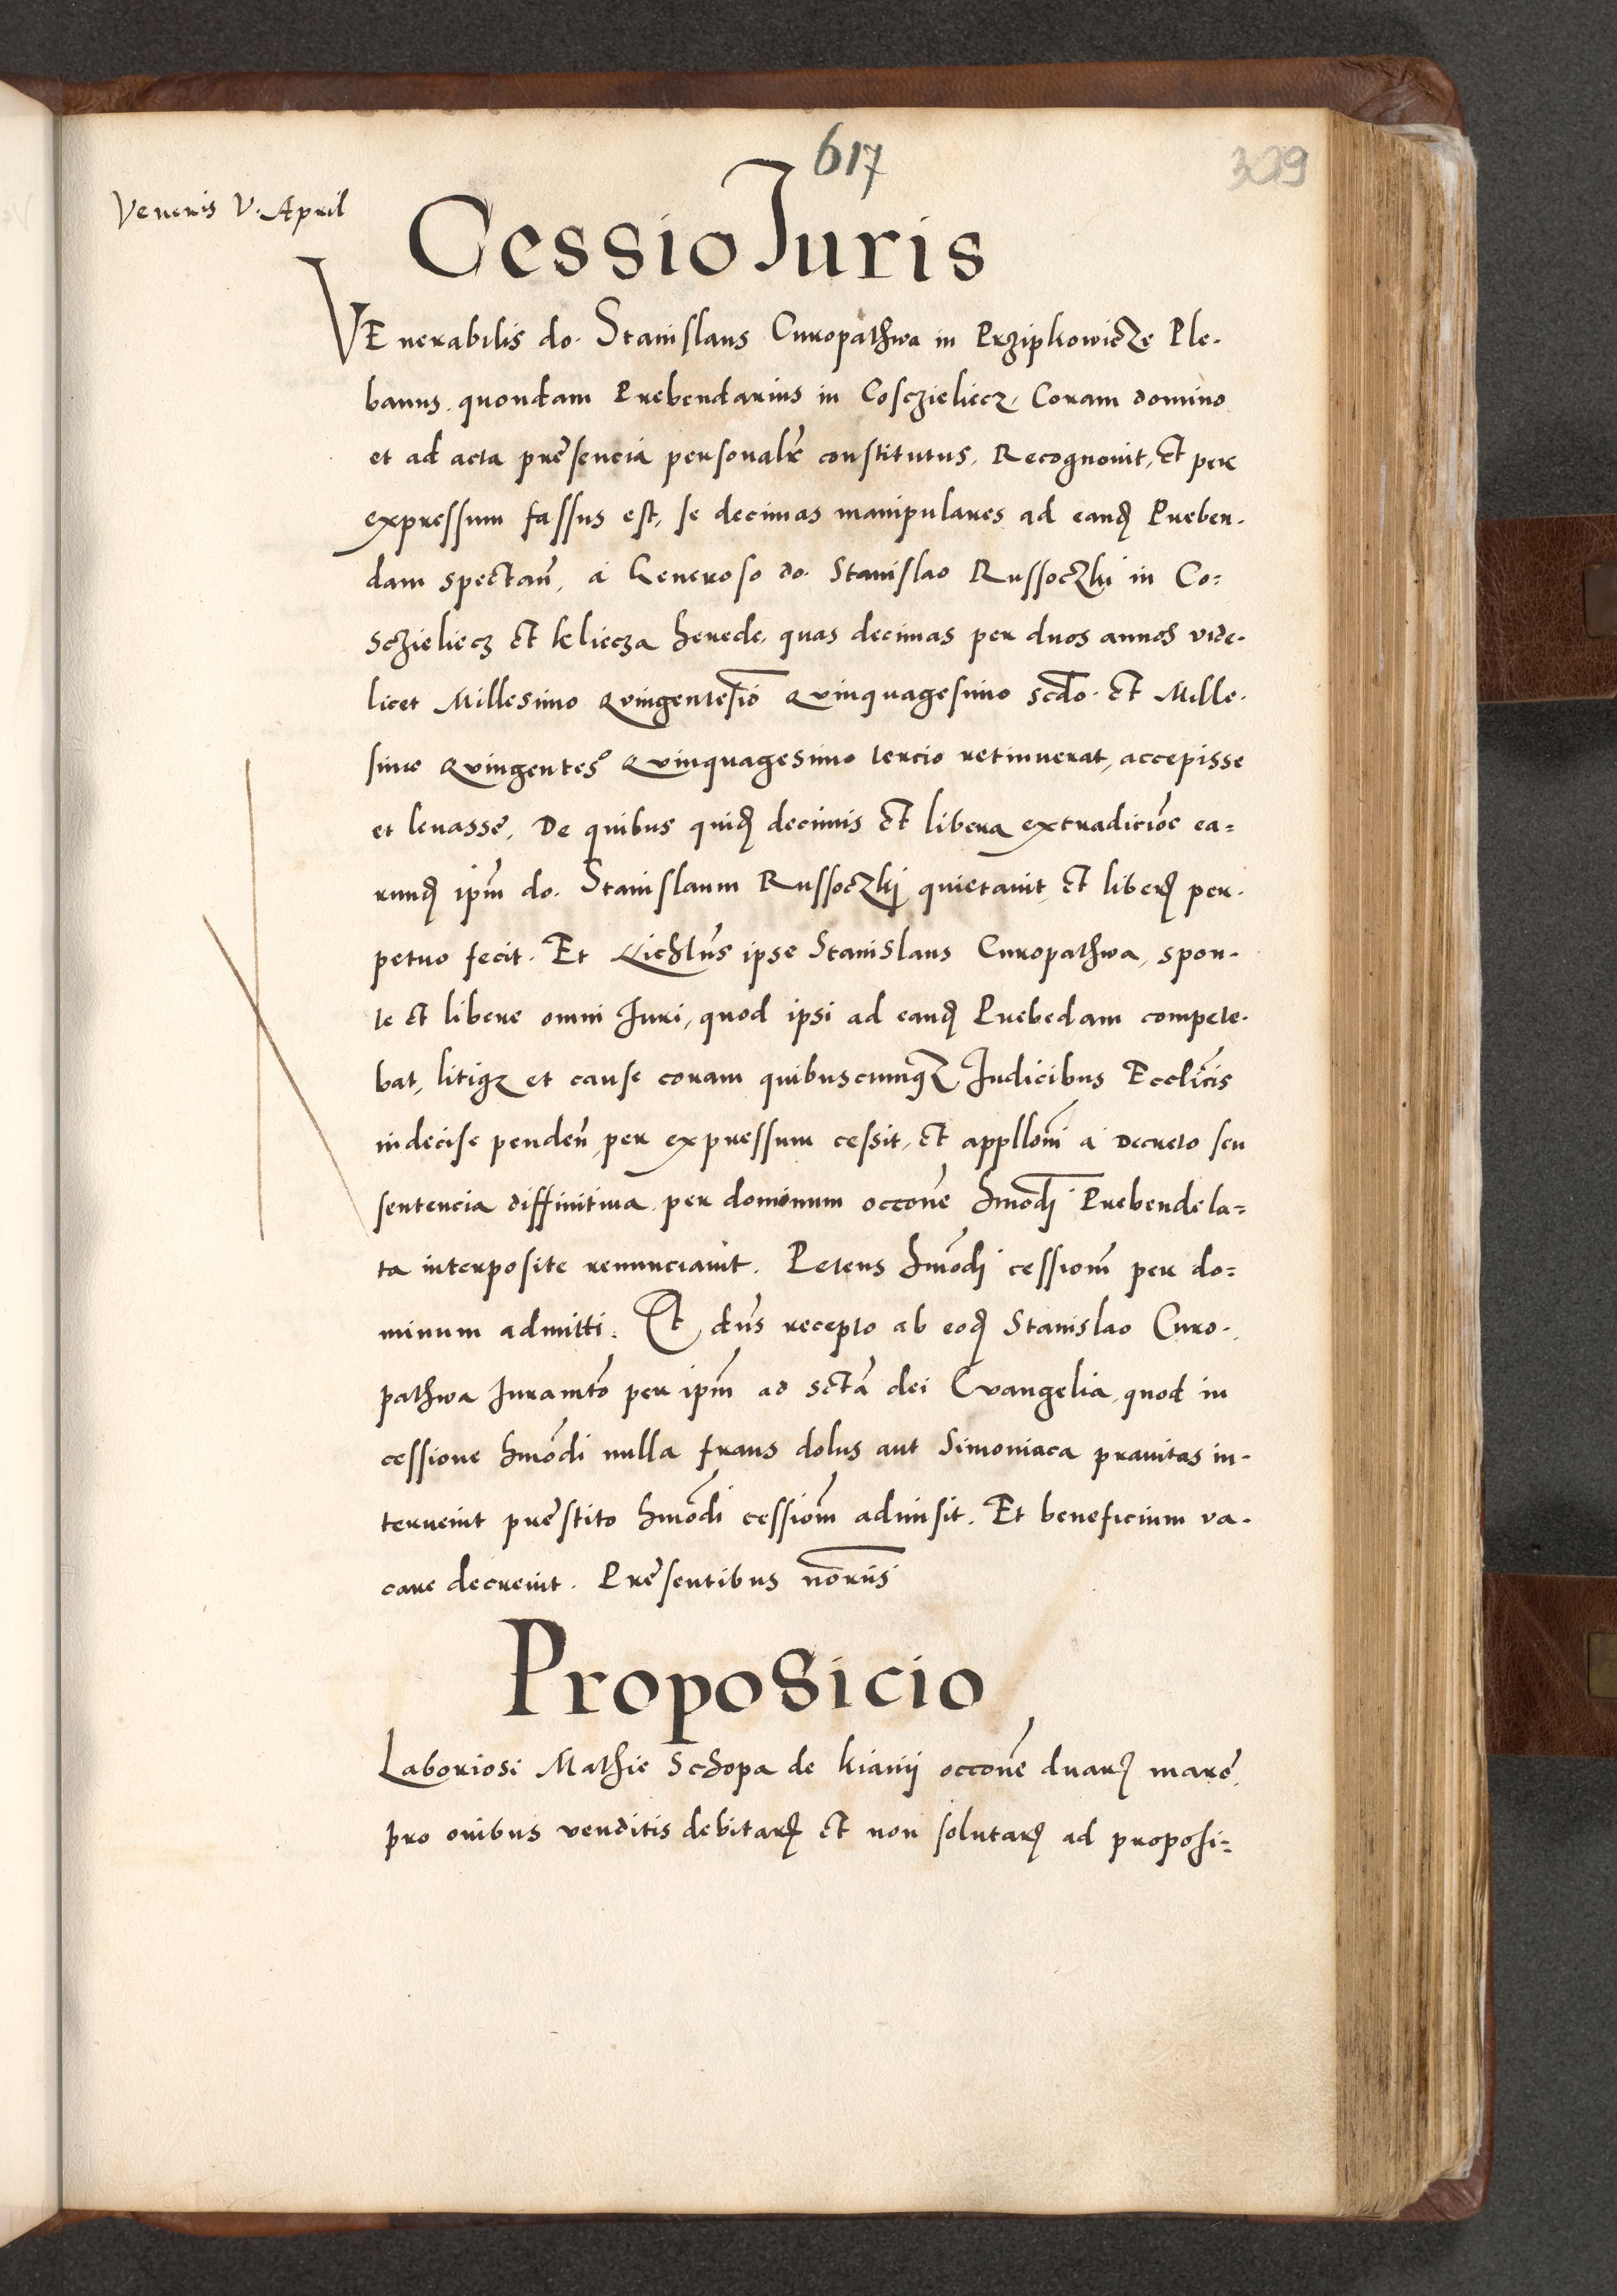 617
309
Veneris V. April
Cessio Juris
VEnerabilis do. Stanislaus Curopathwa in Przipkowicze Ple.
banus quondam Prebendarius in Cosczieliecz, Coram domino
et ad acta presencia personalr̃ constitutus, Recognouit, et per
expressum fassus est, se decimas manipulares ad eandꝫ Preben.
dam spectan̄, a Generoso do. Stanislao Russoczki in Co=
sczieliecz et kliecza herede, quas decimas per duos annos vide.
licet Millesimo Quingentesīo Quinquagesimo scd̄o. et Mille.
simo Quingentesº Quinquagesimo tercio retinuerat, accepisse
et leuasse, De quibus quidꝫ decimis et libera extradicio͞e ea=
rundꝫ ip̄m do. Stanislaum Russoczkj quietauit et liberꝫ per.
petuo fecit. Et Nichl̄us ipse Stanislaus Curopathwa, spon.
te et libere omni Juri, quod ipsi ad eandꝫ Prebedam compete.
bat, litiqꝫ et cause coram quibuscumqꝫ Judicibus Eccl̄icis
indecise penden̄, per expressum cessit, et appllōni a Decreto seu
sentencia diffinitiua per dominum occōne hmōdj Prebende la=
ta interposite renunciauit. Petens hmōdj cessionm̄ per do=
minum admitti. Et dn̄s recepto ab eodꝫ Stanislao Curo.
pathwa Juramt̄o per ip̄m ad sctā dei Evangelia, quod in
cessione hmōdi nulla fraus dolus aut Simoniaca prauitas in.
teruenit prestito hmōdi cessionm̄ admisit. Et beneficium va.
care decreuit. Presentibus nōriis
Proposicio
Laboriosi Mathie Schopa de kianij occōne duarꝫ marc̄
pro ouibus venditis debitarꝫ et non solutarꝫ ad proposi=